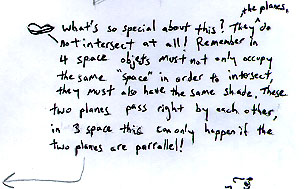 the planes,
What's so special about this? They ^ do
not intersect at all! Remember in
4 space objets must not only occupy
the same "space" in order to intersect,
they must also have the same shade. These
two planes pass right by each other,
in 3 space this can only happen if the
two planes are parrallel!